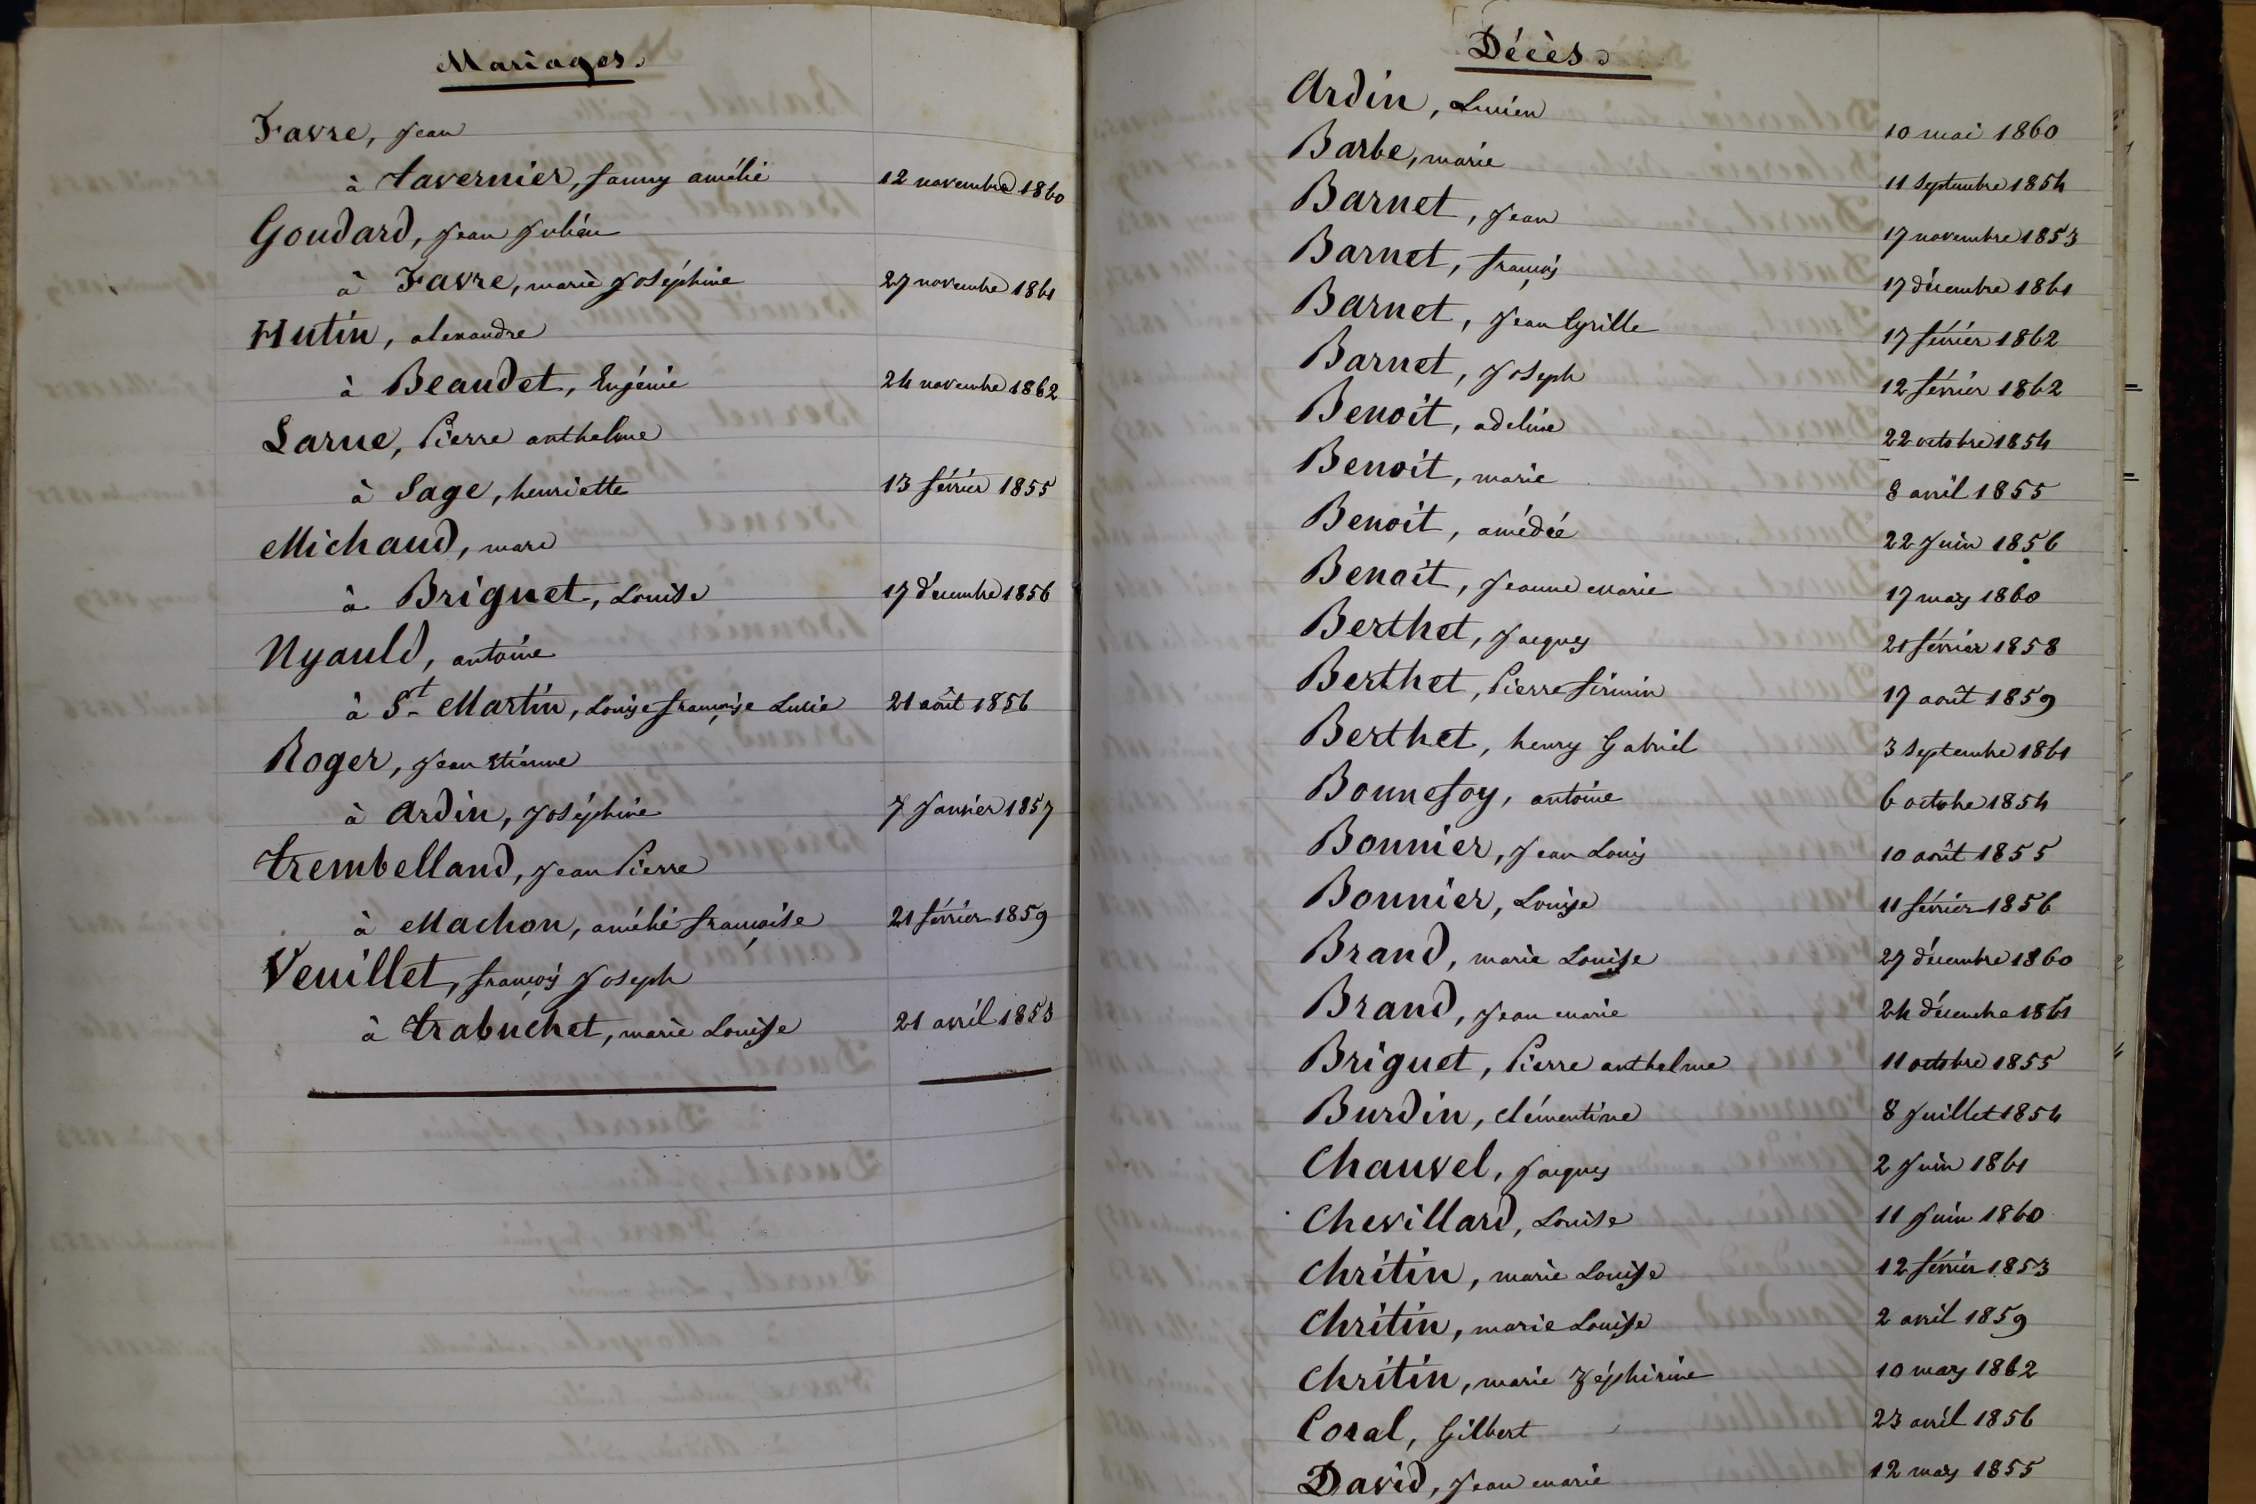 Mariages.
Favre, Jean
à tavernier, fanny amélie 12 novembre 1860
Goudard, Jean Julien
à Favre, marie Joséphine 27 novembre 1861
Hutin, alexandre
à Beaudet, Eugénie 24 novembre 1862
Larue, Pierre anthelme
à Sage, henriette 13 février 1855
Michaud, marc
à Briguet, Louise 17 décembre 1856
Nyauld, antoine
à St Martin, Louise françoise Lucie 21 août 1856
Roger, Jean Etienne
à Ardin, Joséphine 7 Janvier 1857
trembelland, Jean Pierre
à Machon, amélie françoise 21 février 1859
Veuillet, françois Joseph
à trabuchet, marie Louise 21 avril 1858
Décès.
Ardin, Lucien 10 mai 1860
Barbe, marie 11 Septembre 1854
Barnet, Jean 17 novembre 1853
Barnet, françois 17 décembre 1861
Barnet, Jean Cyrille 17 février 1862
Barnet, Joseph 12 février 1862
Benoit, adeline 22 octobre 1854
Benoit, marie 8 avril 1855
Benoit, amédée 22 Juin 1856
Benoit, Jeanne Marie 17 mars 1860
Berthet, Jacques 21 février 1858
Berthet, Pierre firmin 17 août 1859
Berthet, henry Gabriel 3 Septembre 1861
Bonnefoy, antoine 6 octobre 1854
Bonnier, Jean Louis 10 août 1855
Bonnier, Louise 11 février 1856
Brand, marie Louise 27 décembre 1860
Brand, Jean Marie 24 décembre 1861
Briguet, Pierre anthelme 11 octobre 1855
Burdin, Clémentine 8 Juillet 1854
Chauvel, Jacques 2 Juin 1861
Chevillard, Louise 11 Juin 1860
Chritin, marie Louise 12 février 1853
Chritin, marie Louise 2 avril 1859
Chritin, marie Zéphirine 10 mars 1862
Coral, Gilbert 23 avril 1856
David, Jean Marie 12 mars 1855